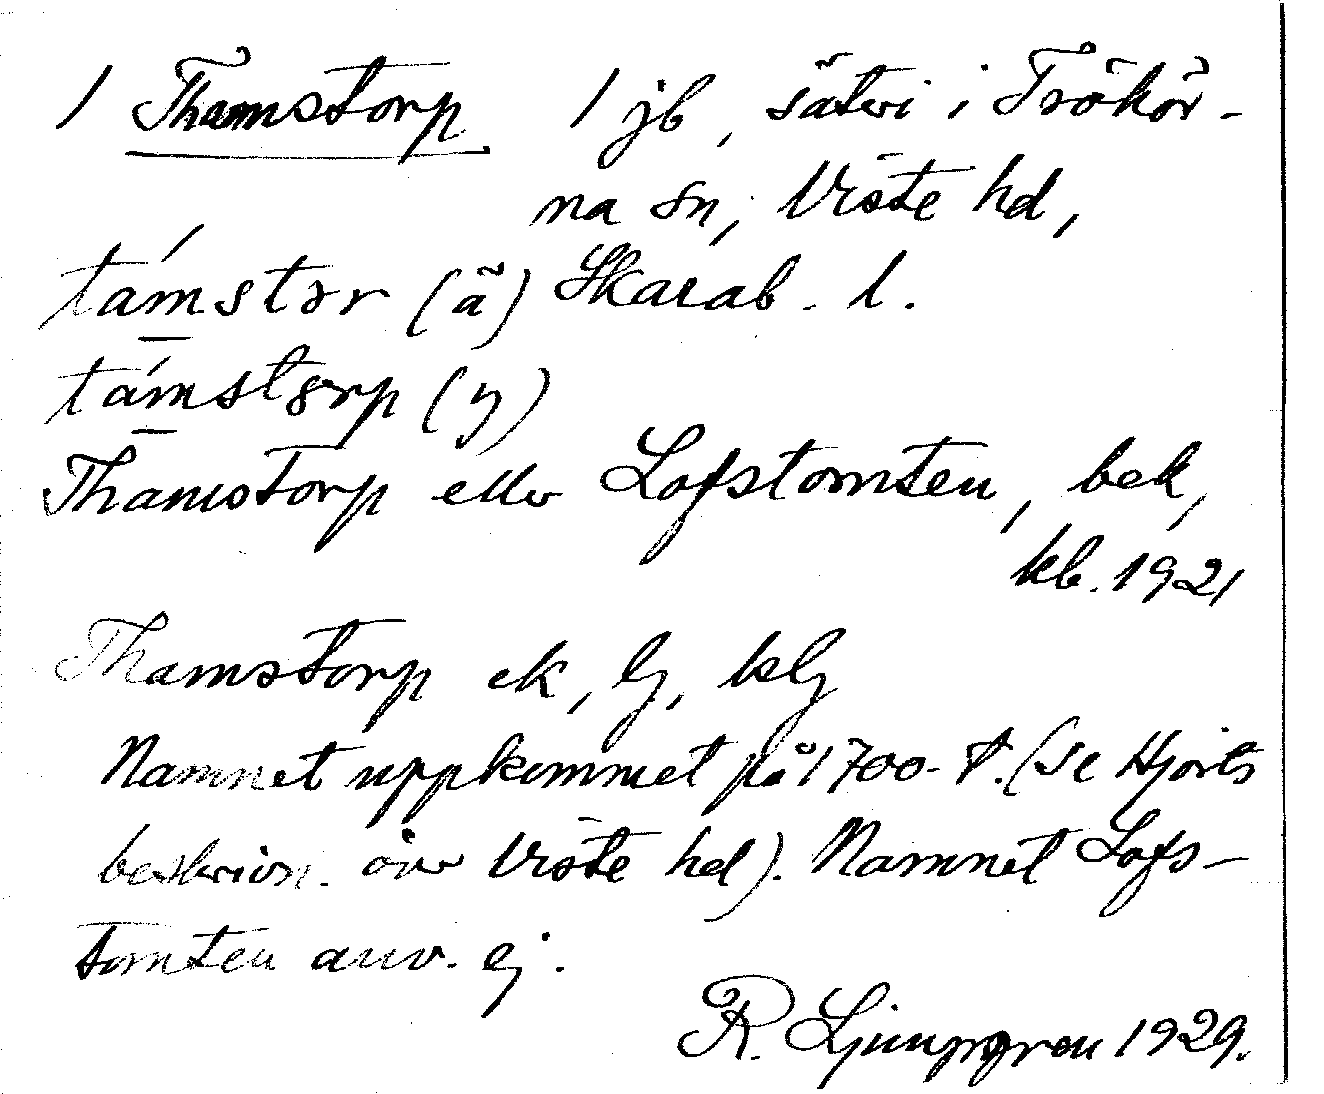 1 Thamstorp 1 jb, säteri i Trökör-
na sn, Viste hd,
támstɤr (ã) Skarab. l.
támstɤrp (y)
Thamstorp eller Lofstomten, bek,
kb. 1921
Thamstorp ek, lj, hlj
Namnet uppkommet på 1700-t. (se Hjorts
beskrivn. över Viste hd). Namnet Lofs-
tomten anv. ej.
R. Ljunggren 1929.